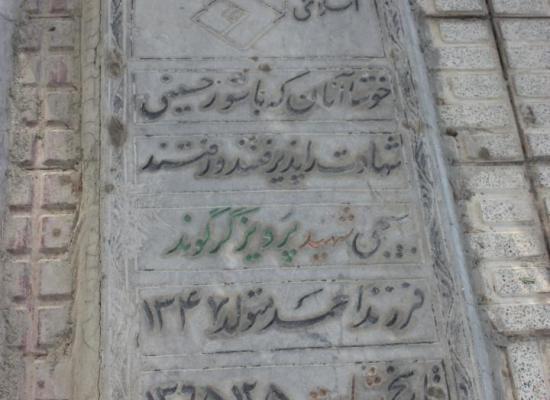 اسلامی
خوشا آنان که با شور حسینی
شهادت را پذیرفتند و رفتند
بسیجی شهید پرویز گرگوند
فرزند احمد متولد ۱۳۴۷
تاریخ شهادت